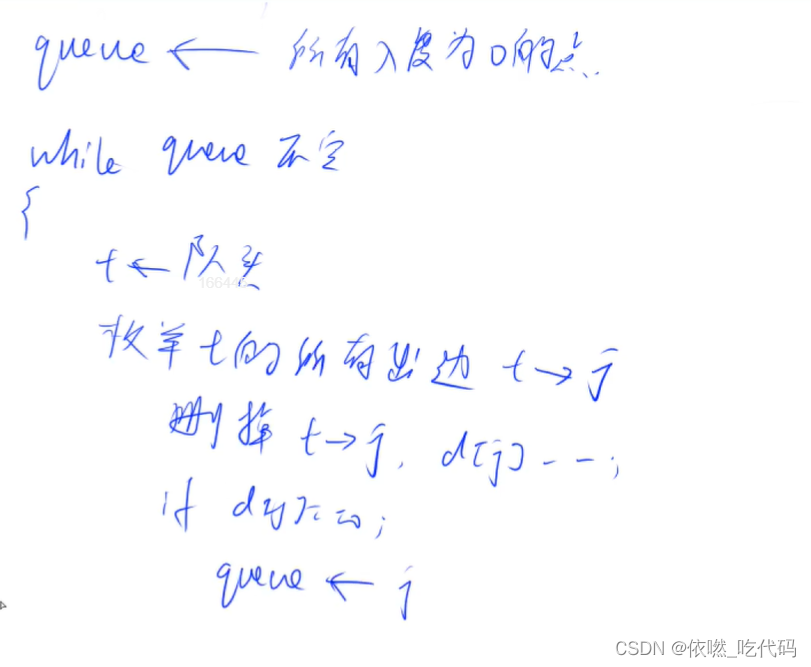 queue ← 所有入度为0的点.
while queue 不空
{
t ← 队头
166445
枚举 t的所有出边 t→j
删掉 t→j, d[j]--;
if d[j]==0;
queue ← j
CSDN @依燃_吃代码